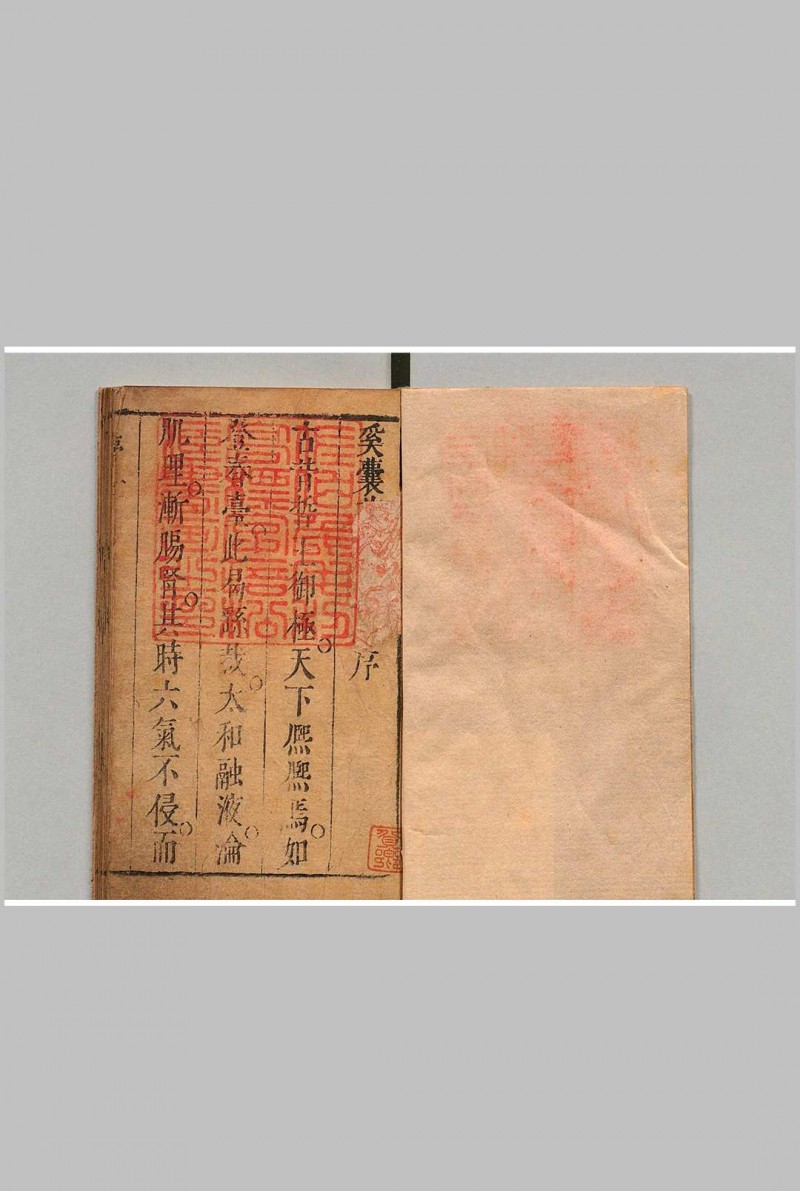 奚囊 序
古昔 御極天下熈熈焉如
登春臺此曷蹊哉太和融液淪
肌理漸腸胃其時六氣不侵而
序